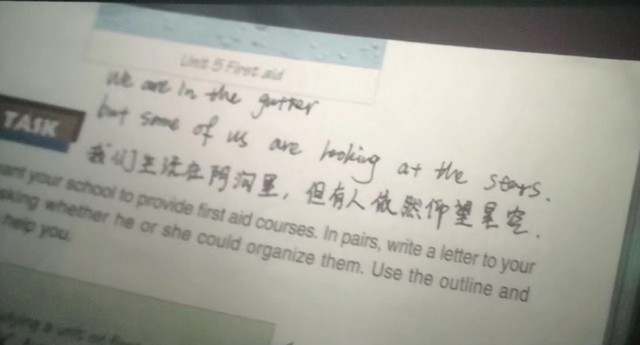 Unit 5 First aid
We are in the gutter
but some of us are looking at the stars.
TASK
我们生活在阴沟里，但有人依然仰望星空.
want your school to provide first aid courses. In pairs, write a letter to your
asking whether he or she could organize them. Use the outline and
help you.